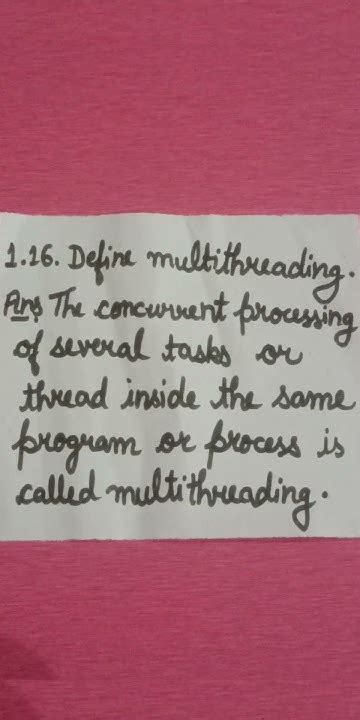 1.16. Define multithreading.
Ans The concurrent processing
of several tasks or
thread inside the same
program or process is
called multithreading.